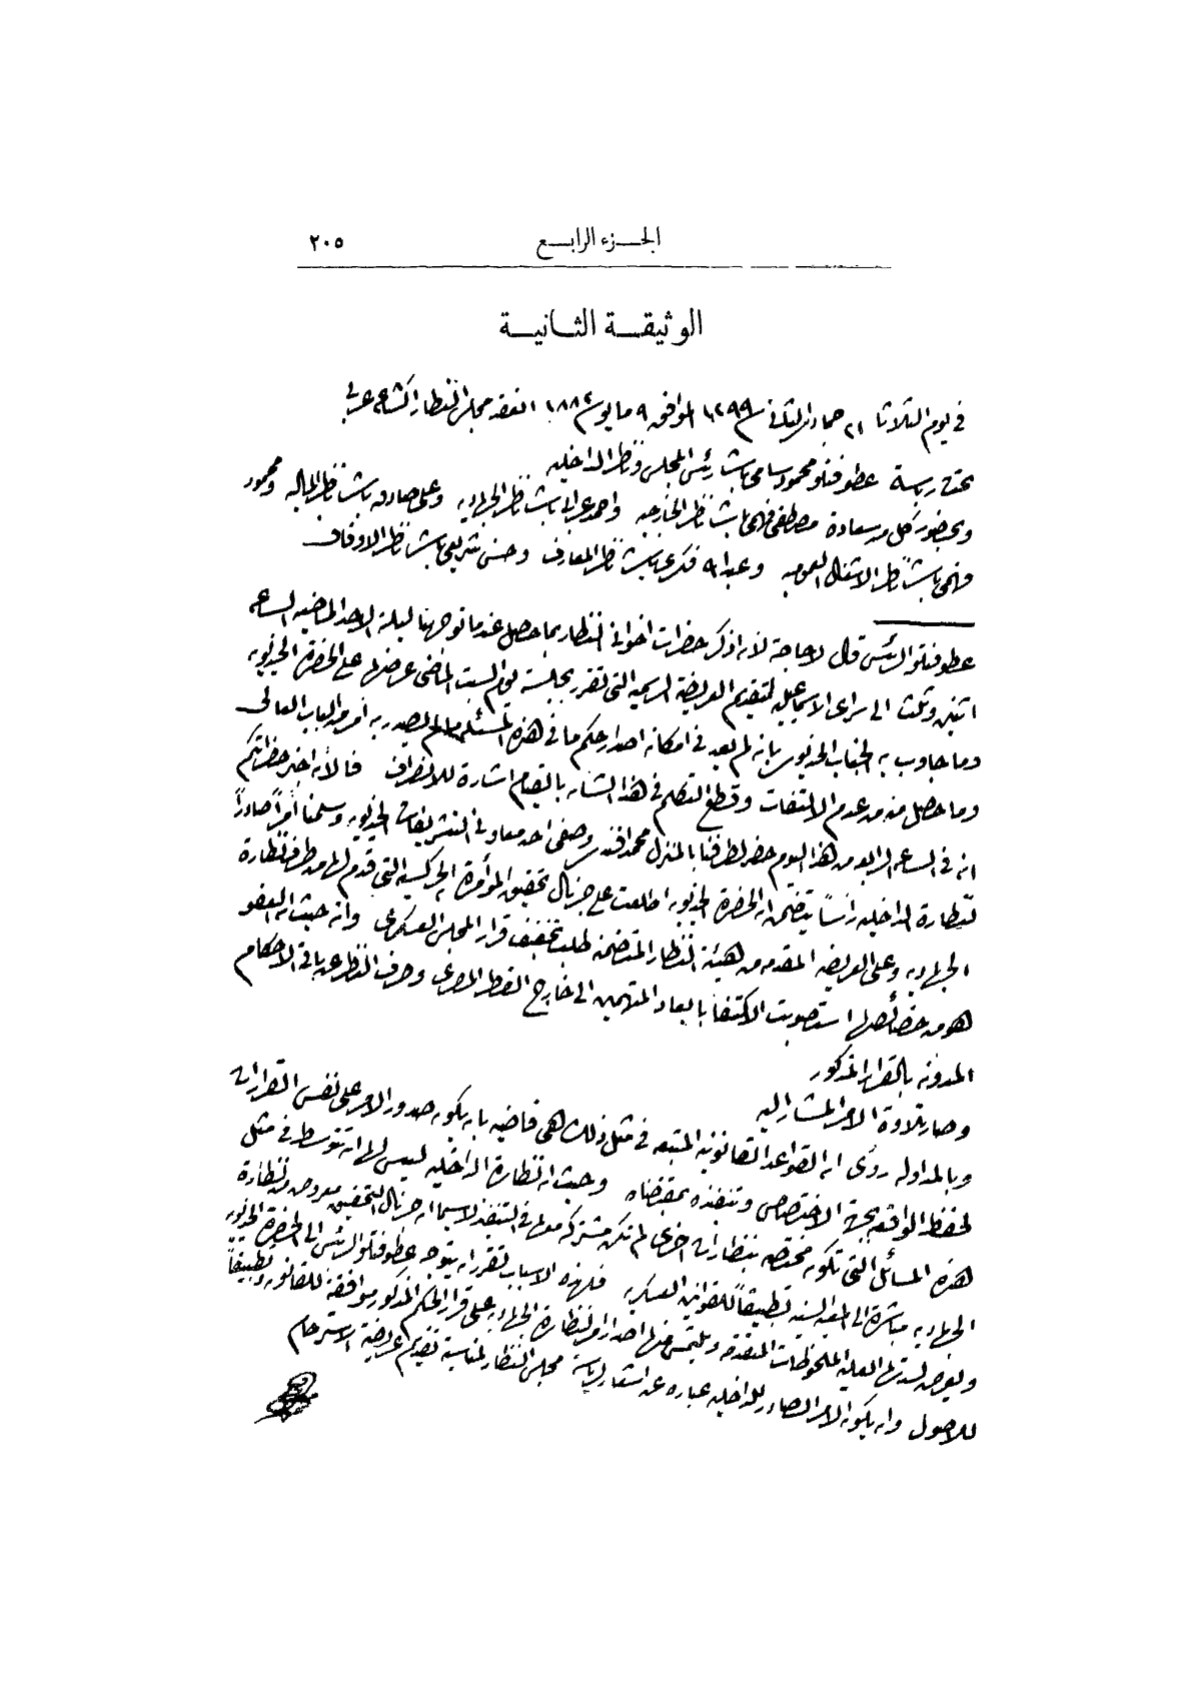 الجزء الرابع
٢٠٥
الوثيقة الثانية
فى يوم الثلاثا ٢١ جماد الثانى سنة ١٢٩٩ الموافق ٩ مايو سنة ١٨٨٢ انعقد مجلس النظار الساعه عربى
تحت رياسة عطوفتلو محمود سامى باشا رئيس المجلس وناظر الداخليه
وبحضور كل من سعادة مصطفى فهمى باشا ناظر الخارجيه واحمد عرابى باشا ناظر الجهاديه وعلى صادق باشا ناظر الماليه ومحمود
فهمى باشا ناظر الاشغال العموميه وعبد الله فكرى باشا ناظر المعارف وحسن شريعى باشا ناظر الاوقاف
عطوفتلو الرئيس قال لا حاجة لان اذكر حضرات اخوانى النظار بما حصل عندما توجهنا ليلة الاحد الماضيه الساعه
اثنين وثلث الى سراى الاسماعيليه لتقديم العريضة الرسميه التى تقرر بجلسة يوم السبت الماضى عرضها على الحضرة الخديويه
وما جاوب به الجناب الخديوى بانه لم يعد فى امكانه اصدار حكم ما فى هذه المسئله ما لم يصدر به امر من الباب العالى
وما حصل منه من عدم الالتفات وقطع التكلم فى هذا الشان بالقيام اشارة للانصراف فالآن اخبر حضراتكم
انه فى الساعه الرابعه من هذا اليوم حضر لطرفنا بالمنزل محمد افندى وصفى احد معاونى التشريفات الخديويه وسلمنا أمراً صادراً
لنظارة الداخليه رأساً يتضمن ان الحضرة الخديويه اطلعت على جرنال تحقيق المؤامرة الجركسيه التى قدم لها من طرف نظارة
الجهاديه وعلى العريضه المقدمه من هيئة النظار المتضمنه طلب تخفيف قرار المجلس العسكرى وانه حيث ان العفو
هو من خصائصها استصوبت الاكتفا بابعاد المتهمين الى خارج القطر المصرى وصرف النظر عن باقى الاحكام
المدونه بالقرار المذكور
وصار تلاوة الامر المشار اليه
وبالمداوله رؤى ان القواعد القانونيه المتبعه فى مثل ذلك هى قاضيه بان يكون صدور الامر على نفس القرارات
لحفظ الواقعه بجهة الاختصاص وتنفذه بمقتضاه وحيث ان نظارة الداخليه ليس لها ان تتوسط فى مثل
هذه المسائل التى تكون مختصه بنظارات اخرى لم تكن مشتركه معها فى التنفيذ لا سيما ان جرنال التحقيق معروض من نظارة
الجهاديه مباشرة الى المعيه السنيه تطبيقاً للقوانين العسكريه فلهذه الاسباب تقرر ان يتوجه عطوفتلو الرئيس الى الحضرة الخديويه
ويعرض لسدتها العليه الملحوظات المتقدمه ويلتمس منها اصدار امر لنظارة الجهاديه على قرار الحكم المذكور موافقة للقانون وتطبيقاً
للاصول وان يكون الامر الصادر للداخليه عباره عن اشعار لرياسة مجلس النظار لمناسبة تقديم عريضة الاسترحام